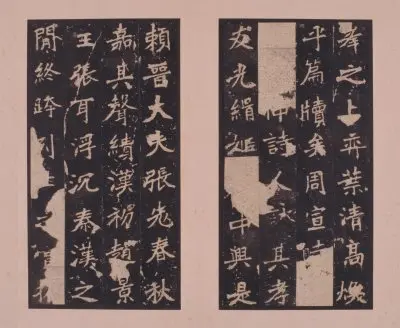 峯之上弈葉清高煥
乎篇牘矣周宣時
仲詩人詠其孝
友光緝姬中興是
賴晉大夫張老春秋
嘉其聲績漢初趙景
王張耳浮沉秦漢之
間終跨列之